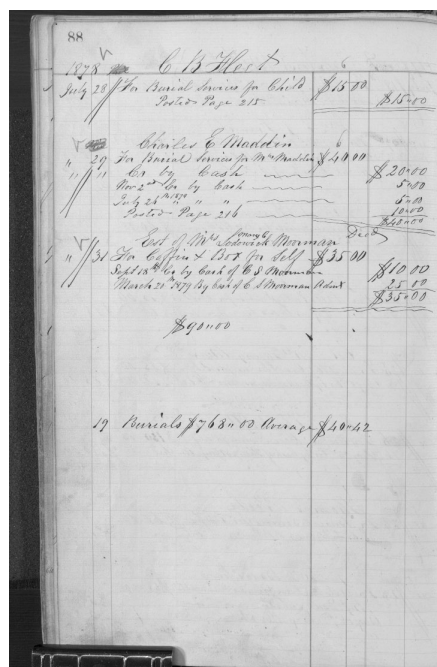 88
1878 C B Fleet
July 28 For Burial Services for Child $15 00
Posted Page 215 $15 00
Charles E Maddin
" 29 For Burial Services for Mrs Maddin $40 00
" " Cr by Cash $20 00
Nov 2nd Cr by Cash 5 00
July 26th 1879 " " " 5 00
10 00
Posted Page 216 $40 00
Est of Mrs Mary E Sedowick Morman Decd
" 31 For Coffin & Box for Self $35 00
Sept 18th Cr by Cash of C S Morman $10 00
March 21st 1879 By Cash of C S Morman Admr 25 00
$35 00
$90 00
19 Burials $768 00 Average $40 42